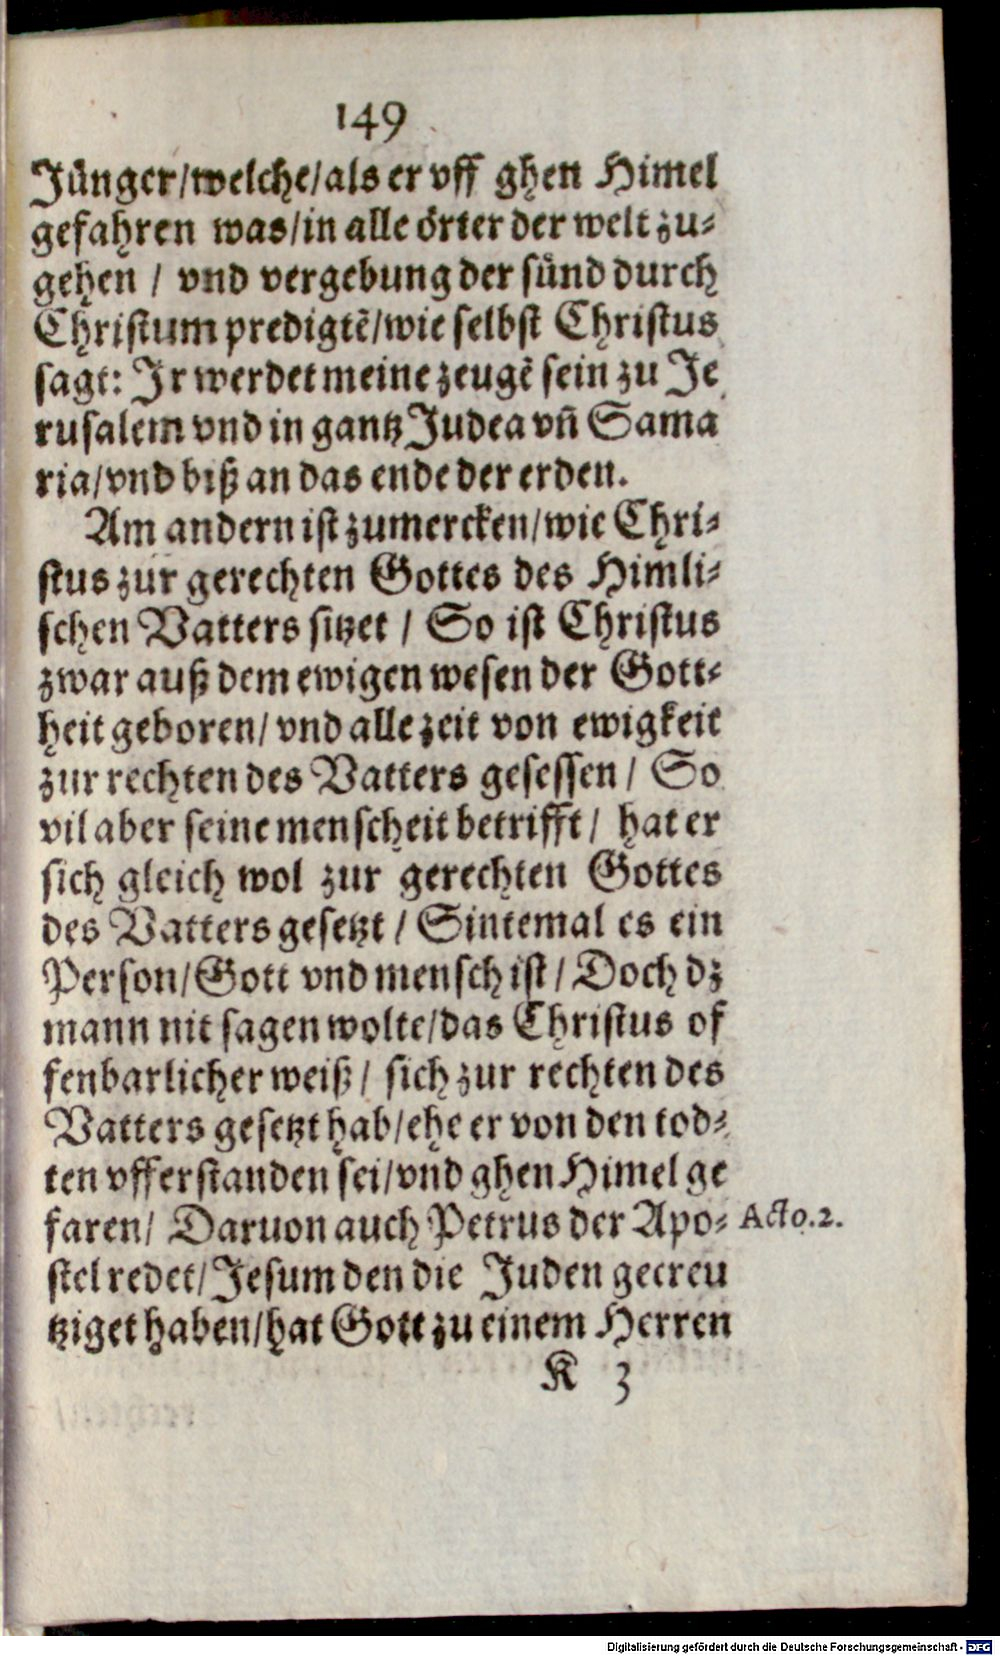 149
Jünger/welche/als er vff ghen Himel
gefahren was/in alle örter der welt zu-
gehen / vnd vergebung der sünd durch
Christum predigtē/wie selbst Christus
sagt: Ir werdet meine zeugē sein zu Je
rusalem vnd in gantz Judea vñ Sama
ria/vnd biß an das ende der erden.
Am andern ist zumercken/wie Chri-
stus zur gerechten Gottes des Himli-
schen Vatters sitzet / So ist Christus
zwar auß dem ewigen wesen der Gott-
heit geboren/ vnd alle zeit von ewigkeit
zur rechten des Vatters gesessen / So
vil aber seine menscheit betrifft / hat er
sich gleich wol zur gerechten Gottes
des Vatters gesetzt / Sintemal es ein
Person/Gott vnd mensch ist / Doch dz
mann nit sagen wolte/das Christus of
fenbarlicher weiß / sich zur rechten des
Vatters gesetzt hab/ehe er von den tod-
ten vfferstanden sei/vnd ghen Himel ge
faren/ Daruon auch Petrus der Apo- Acto.2.
stel redet/Jesum den die Juden gecreu
tziget haben/hat Gott zu einem Herren
K 3
Digitalisierung gefördert durch die Deutsche Forschungsgemeinschaft - DFG